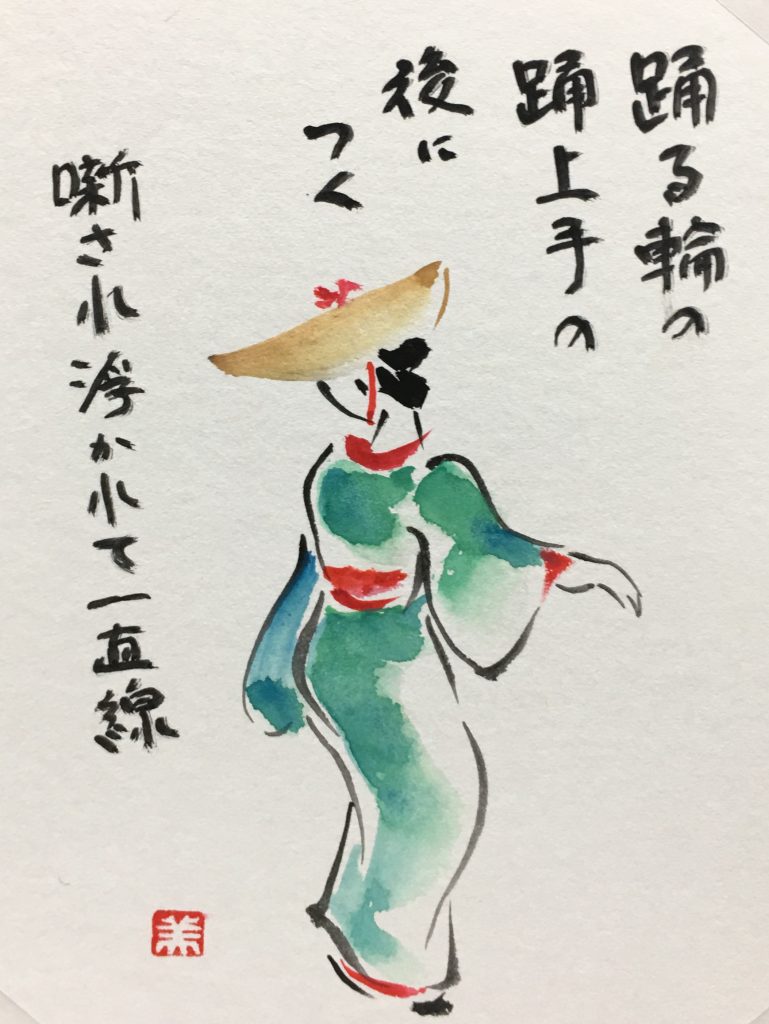 踊る輪の
踊上手の
後に
つく
囃され浮かれて一直線
美